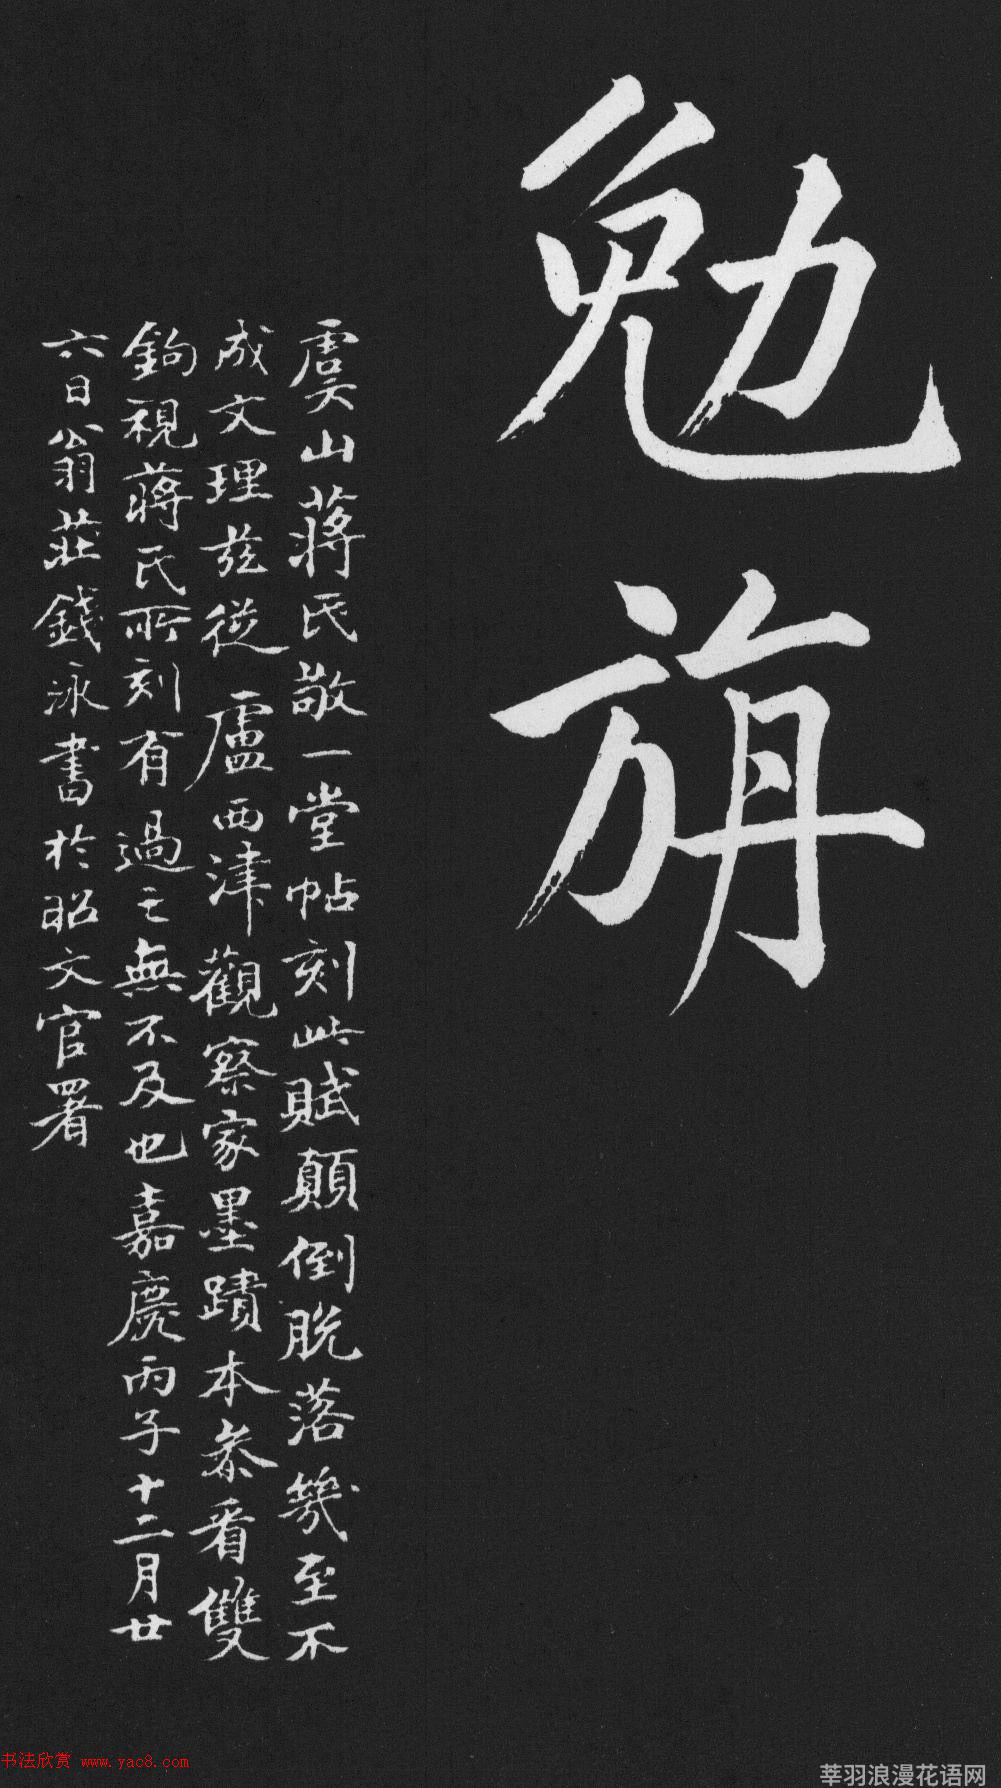 勉旃
虞山蔣氏敬一堂帖刻此賦顛倒脫落幾至不
成文理茲從盧西津觀察家墨蹟本叅看雙
鉤視蔣氏所刻有過之無不及也嘉慶丙子十二月廿
六日翁莊錢泳書於昭文官署
书法欣赏 www.yac8.com
莘羽浪漫花语网